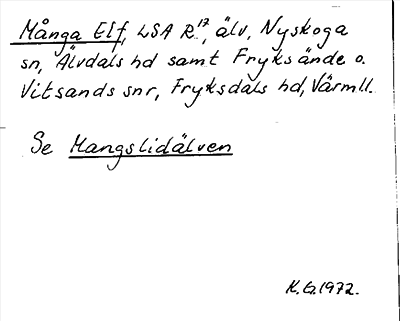 Många Elf, LSA R.17, älv, Nyskoga
sn, Älvdals hd samt Fryksände o.
Vitsands snr, Fryksdals hd, Värmll.
Se Mangslidälven
K.G.1972.